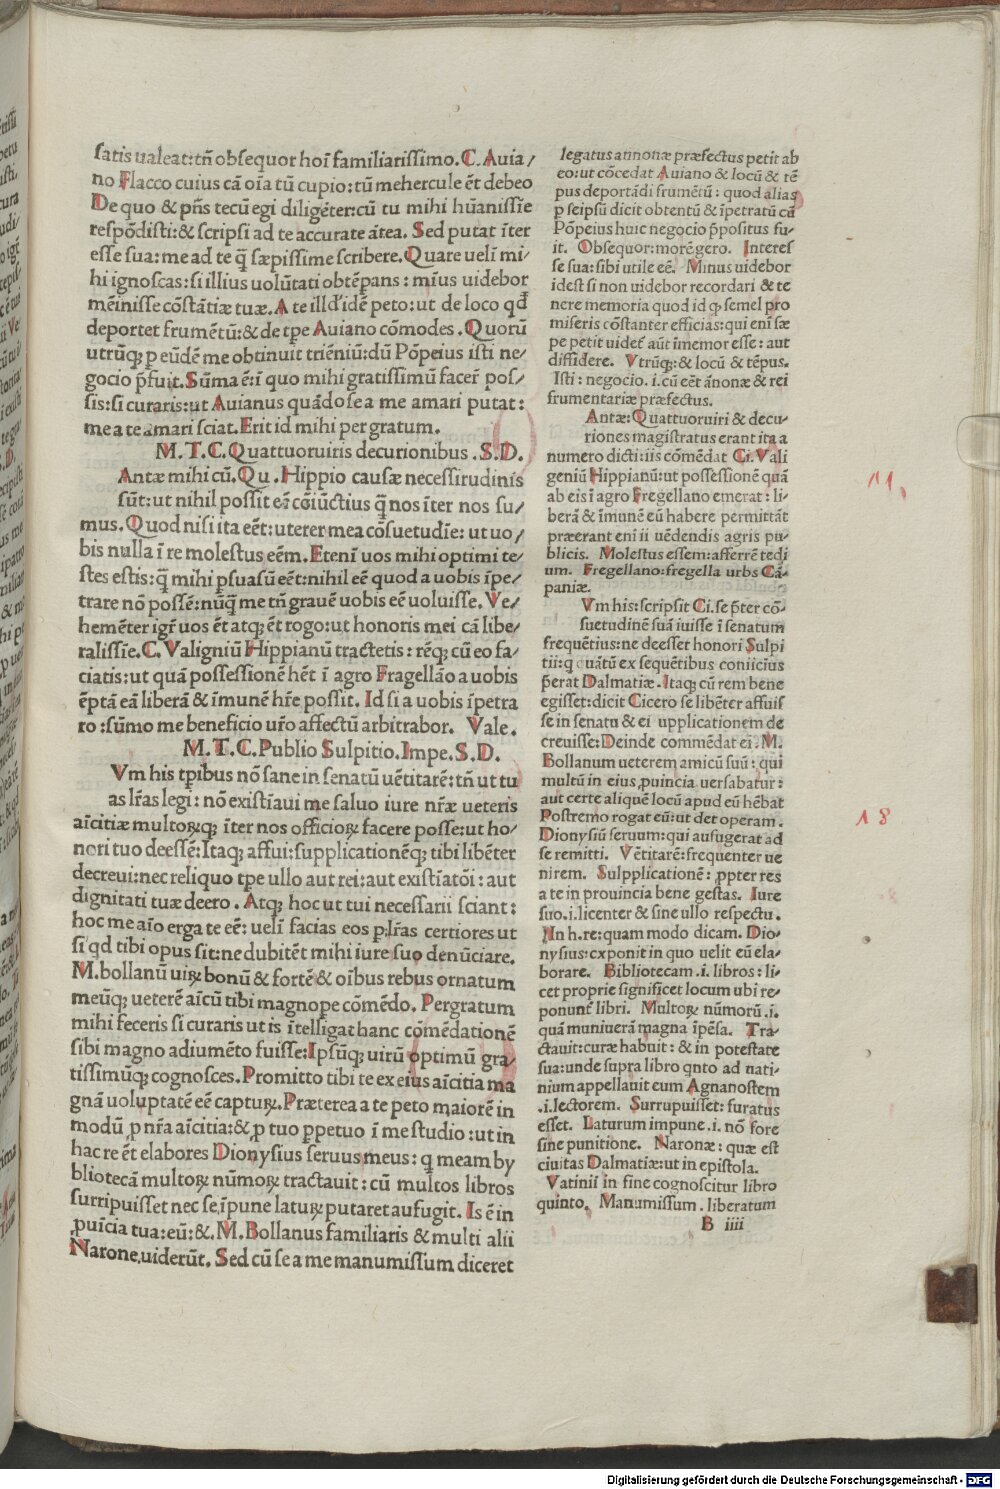 satis ualeat:tñ obsequor hoī familiarissimo.C.Auia/
no Flacco cuius cā oīa tū cupio:tū mehercule ēt debeo
De quo & pñs tecū egi diligēter:cū tu mihi hūanissīe
respōdisti:& scripsi ad te accurate ātea. Sed putat īter
esse sua:me ad te q̄ sæpissime scribere.Quare uelī mi/
hi ignoscas:si illius uolūtati obtēpans: mīus uidebor
mēinisse cōstātiæ tuæ. A te illd' idē peto:ut de loco qđ
deportet frumētū:& de tpe Auiano cōmodes.Quorū
utrūq; p eūdē me obtinuit triēniū:dū Pōpeius isti ne/
gocio p̄fuit.Sūma ē:ī quo mihi gratissimū facer̄ pos/
sis:si curaris:ut Auianus quādo se a me amari putat:
me a te amari sciat.Erit id mihi per gratum.
M.T.C.Quattuoruiris decurionibus .S.D.
Antæ mihi cū.Qu.Hippio causæ necessitudinis
sūt:ut nihil possit eē cōiūctius q̄ nos īter nos su/
mus.Quod nisi ita eēt:uterer mea cōsuetudīe: ut uo/
bis nulla ī re molestus eēm.Etenī uos mihi optimi te/
stes estis:q̄ mihi psuasū eēt:nihil eē quod a uobis īpe/
trare nō possē:nūq̄ me tñ grauē uobis eē uoluisse.Ve/
hemēter igr̄ uos ēt atq; ēt rogo:ut honoris mei cā libe/
ralissīe.C.Valigniū Hippianū tractetis:rēq; cū eo fa/
ciatis:ut quā possessionē hēt ī agro Fragellāo a uobis
ēptā eā liberā & īmunē hr̄e possit. Id si a uobis īpetra
ro:sūmo me beneficio uro affectū arbitrabor. Vale.
M.T.C.Publio Sulpitio.Impe.S.D.
Vm his tpibus nō sane in senatū uētitarē:tñ ut tu
as lr̄as legi: nō existīaui me saluo iure nr̄æ ueteris
aīcitiæ multoꝝq; īter nos officioꝝ facere posse:ut ho/
nori tuo deessē:Itaq; affui:supplicationēq; tibi libēter
decreui:nec reliquo tpe ullo aut rei:aut existīatōi: aut
dignitati tuæ deero. Atq; hoc ut tui necessarii sciant:
hoc me aīo erga te eē: uelī facias eos p lr̄as certiores ut
si qd tibi opus sit:ne dubitēt mihi iure suo denūciare.
M.bollanū uiꝝ bonū & fortē & oībus rebus ornatum
meūq; ueterē aīcū tibi magnope cōmēdo. Pergratum
mihi feceris si curaris ut is ītelligat hanc cōmēdationē
sibi magno adiumēto fuisse:Ipsūq; uirū optimū gra/
tissimūq; cognosces.Promitto tibi te ex eius aīcitia ma
gnā uoluptatē eē captuꝝ.Præterea a te peto maiorē in
modū p nr̄a aīcitia:& p tuo ppetuo ī me studio:ut in
hac re ēt elabores Dionysius seruus meus: q meam by
bliotecā multoꝝ nūmoꝝ tractauit: cū multos libros
surripuisset nec se īpune latuꝝ putaret aufugit. Is ē in
puīcia tua:eū:&.M.Bollanus familiaris & multi alii
Narone uiderūt. Sed cū se a me manumissum diceret
legatus annonæ præfectus petit ab
eo:ut cōcedat Auiano & locū & tē
pus deportādi frumētū: quod alias
p seipsū dicit obtentū & īpetratū cū
Pōpeius huic negocio p̄positus fu-
it. Obsequor:morē gero. Interes
se sua:sibi utile eē. Minus uidebor
idest si non uidebor recordari & te
nere memoria quod id q semel pro
miseris cōstanter efficias:qui enī sæ
pe petit uidet' aūt īmemor esse: aut
diffidere. Vtrūq;:& locū & tēpus.
Isti: negocio.i.cū eēt ānonæ & rei
frumentariæ præfectus.
Antæ:Quattuoruiri & decu-
riones magistratus erant ita a
numero dicti:iis cōmēdat Ci.Vali
geniū Hippianū:ut possessionē quā
ab eis ī agro Fregellano emerat: li-
berā & īmunē eū habere permittāt
præerant eni ii uēdendis agris pu-
blicis. Molestus essem:afferrē tedi
um. Fregellano:fregella urbs Cā-
paniæ.
Vm his:scripsit Ci.se p̄ter cō-
suetudinē suā iuisse ī senatum
frequētius:ne deesset honori Sulpi
tii: ex sequētibus coniicius
p̄erat Dalmatiæ.Itaq; cū rem bene
egisset:dicit Cicero se libēter affuis
se in senatu & ei upplicationem de
creuisse:Deinde commēdat ei.M.
Bollanum ueterem amicū suū: qui
multū in eius puincia uersabatur:
aut certe aliquē locū apud eū hēbat
Postremo rogat eū:ut det operam.
Dionysiū seruum:qui aufugerat ad
se remitti. Vētitarē:frequenter ue
nirem. Sulpplicationē: ppter res
a te in prouincia bene gestas. Iure
suo.i.licenter & sine ullo respectu.
In h.re:quam modo dicam. Dio-
nysius:exponit in quo uelit eū ela-
borare. Bibliotecam.i. libros: li-
cet proprie significet locum ubi re-
ponunt' libri. Multoꝝ nūmorū.i.
quā muniuerā magna īpēsa. Tra-
ctauit:curæ habuit: & in potestate
sua:unde supra libro qnto ad nati-
nium appellauit eum Agnanostem
.i.lectorem. Surrupuisset: furatus
esset. Laturum impune.i. nō fore
sine punitione. Naronæ: quæ est
ciuitas Dalmatiæ:ut in epistola.
Vatinii in fine cognoscitur libro
quinto. Manumissum. liberatum
B iiii
11.
18
Digitalisierung gefördert durch die Deutsche Forschungsgemeinschaft - DFG